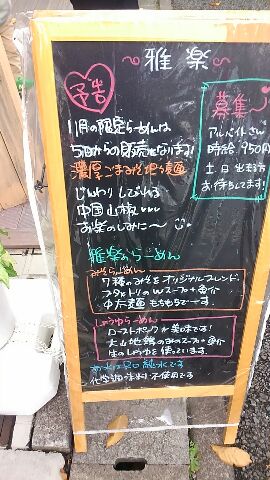 雅楽
予告
11月の限定らーめんは
5日からの販売になります!
濃厚ごまみそ担々麺
じんわりしびれる
中国山椒
お楽しみに〜
募集
アルバイトさん
時給 950円
土日出来る方
お待ちしてます!
雅楽らーめん
みそらーめん
7種のみそをオリジナルブレンド、
ブタとトリのWスープ+魚介
中太麺もちもちでーす。
しょうゆらーめん
ローストポークが美味です!
大山地鶏のみのスープ+魚介
生のしょうゆを使っています。
化学調味料不使用です